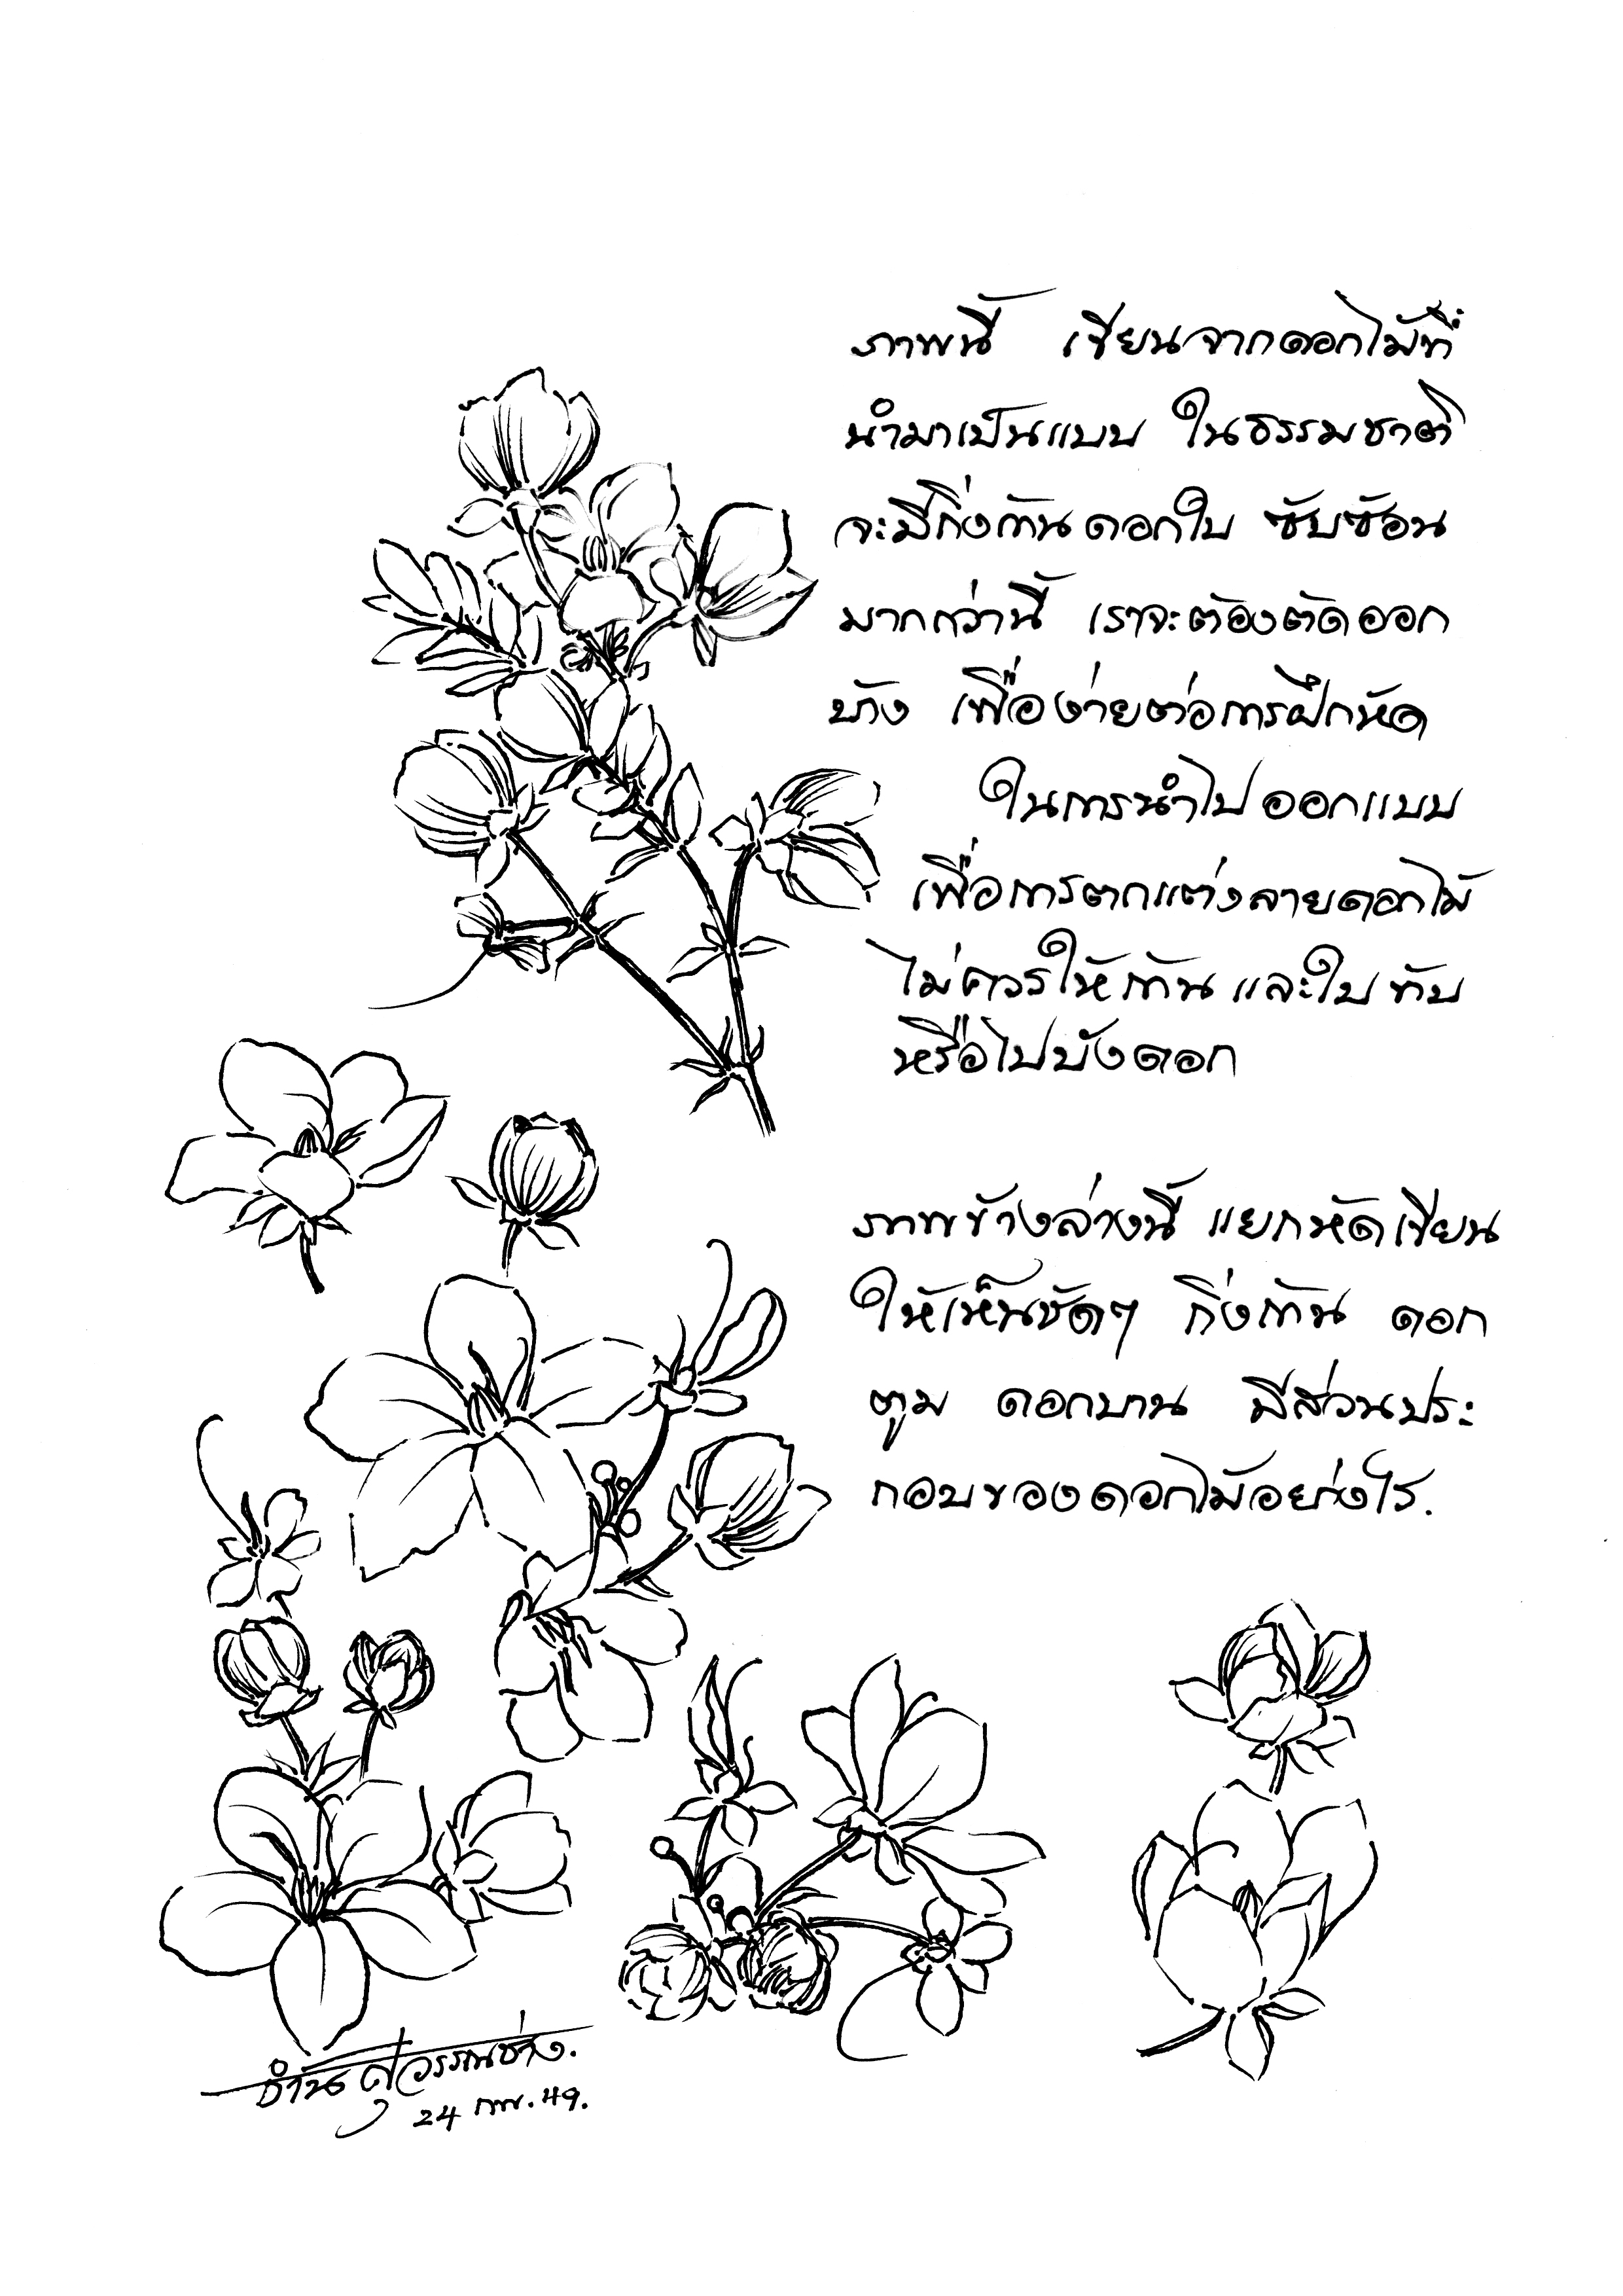 ภาพนี้ เขียนจากดอกไม้ที่
นำมาเป็นแบบ ในธรรมชาติ
จะมีกิ่งก้านดอกใบ ซับซ้อน
มากกว่านี้ เราจะต้องตัดออก
บ้าง เพื่อง่ายต่อการฝึกหัด
ในการนำไปออกแบบ
เพื่อการตกแต่งลายดอกไม้
ไม่ควรให้ก้าน และใบ ทับ
หรือไปบังดอก
ภาพข้างล่างนี้ แยกหัดเขียน
ให้เห็นชัดๆ กิ่งก้าน ดอก
ตูม ดอกบาน มีส่วนประ
กอบของดอกไม้อย่างไร.
สุวรรณช่าง.
24 กพ. 49.